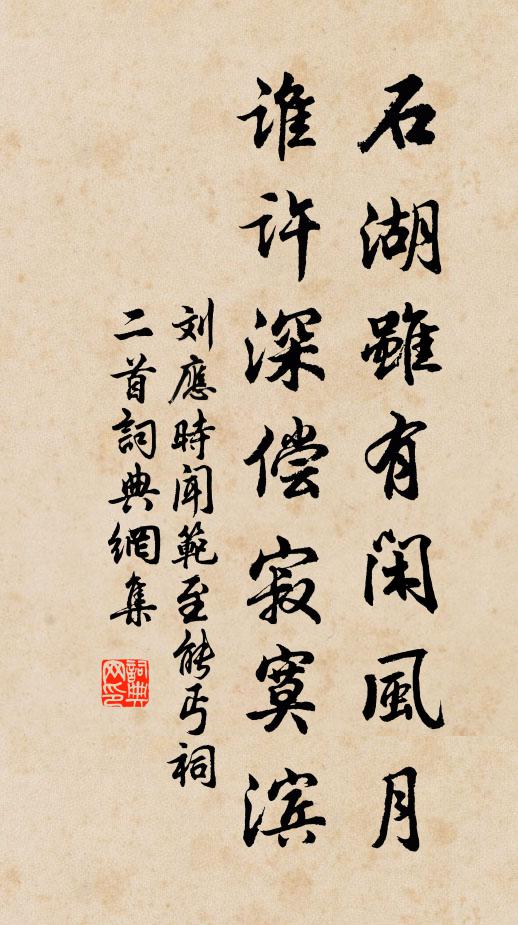 石湖雖有閑風月
谁许深偿寂寞滨
刘應時聞範至能丐祠
二首詞典網集
詞典网印